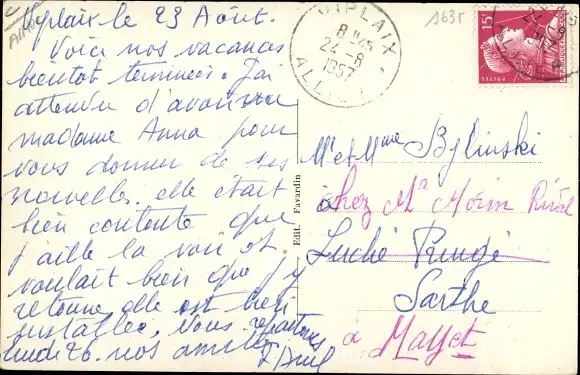 Oyplaix le 23 Août.
Voici nos vacances
bientôt terminées. J'ai
attendu d'avoir vu
madame Anna pour
vous donner de ses
nouvelles. elle était
bien contente que
j'aille la voir et
voulait bien que j'y
retourne, elle est bien
installée. Vous repartons
lundi 26. nos amitiés
UPLAIX
8 H45
24-8
1957
ALLIER
1635
15F
Edit. Favardin
Mr et Mme Bylinski
chez Mr Morin Rival
Luché Pringé
Sarthe
à Mayet